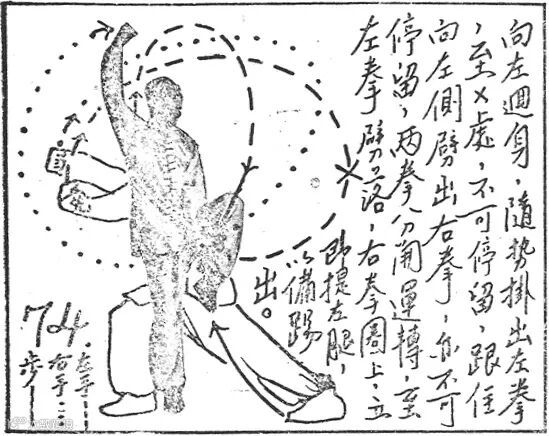 向左迴身，隨势掛出左拳
，至乂處，不可停留，跟住
向左側劈出右拳，亦不可
停留，两拳分開運轉，至
左拳劈云路，右拳圈上，立
即提左腿，
以備踢
出。
74
左手
右手
步